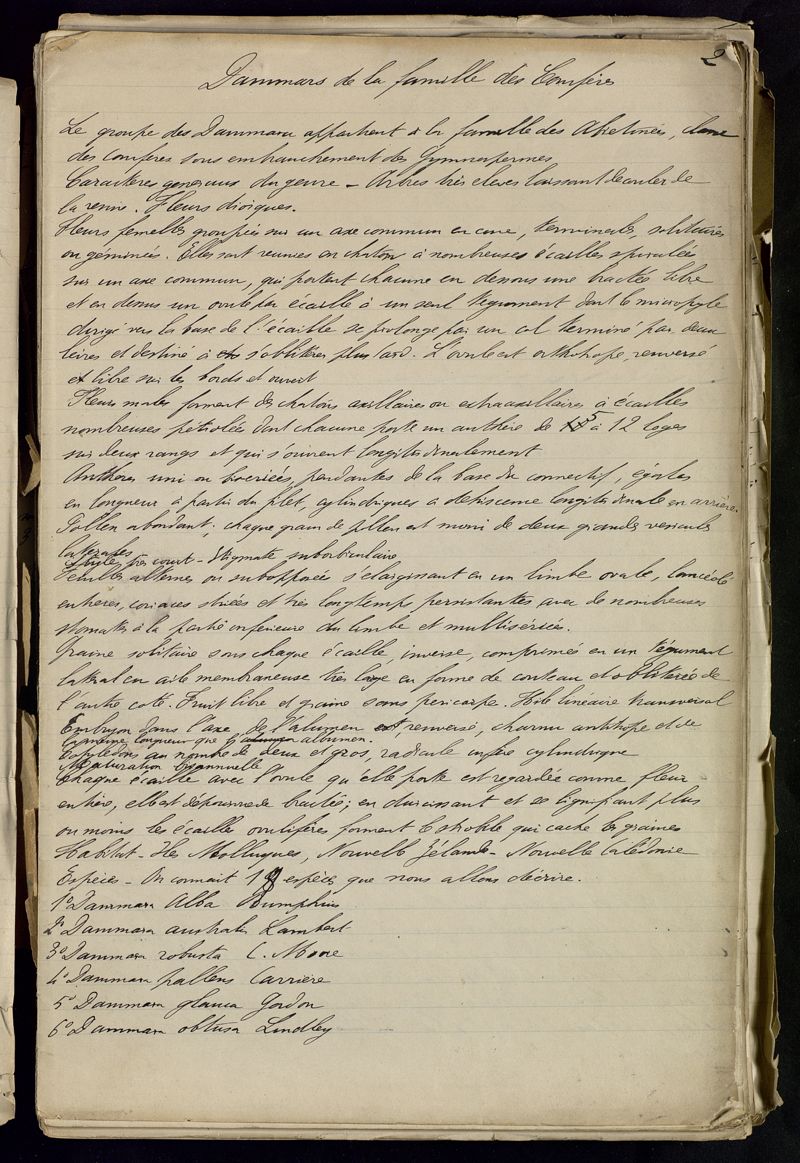 2
Dammars de la famille des Conifères
Le groupe des Dammara appartient à la famille des Abietinées, classe
des conifères sous embranchement des Gymnospermes
Caractères généraux du genre _ Arbres très élevés laissant découler de
la résine. Fleurs dioiques.
Fleurs femelles groupées sur un axe commun en cone, terminales, solitaires
ou géminées. Elles sont reunies en chatons à nombreuses écailles spiralées
sur un axe commun, qui portent chacune en dessous une bractée libre
et en dessus un ovule par écaille à un seul tégument dont le micropyle
dirigé vers la base de l'écaille se prolonge par un col terminé par deux
levres et destiné à s'oblitérer plus tard. L'ovule est orthotrope, renversé
et libre sur les bords et ouvert
Fleurs males forment des chatons axillaires ou extraaxillaires à écailles
nombreuses pétiolées dont chacune porte un anthère de 5 à 12 loges
sur deux rangs et qui s'ouvrent longitudinalement
Anthères uni ou biseriées, pendantes de la base du connectif, égales
en longueur à partir du filet, cylindriques à dehiscence longitudinale en arrière.
Pollen abondant; chaque grain de pollen est muni de deux grandes vesicules
latérales
Style très court _ Stigmate suborbiculaire
Feuilles alternes ou subopposées s'élargissant en un limbe ovale, lancéolé
entières, coriaces striées et très longtemps persistantes avec de nombreuses
stomates à la partie inférieure du limbe et multisériées.
Graine solitaire sous chaque écaille, inverse, comprimée en un tégument
latéral en aile membraneuse très large en forme de couteau et oblitérée de
l'autre coté. Fruit libre et graine sans pericarpe. Hile linéaire transversal
Embryon dans l'axe de l'albumen, renversé, charnu antitrope et de
même longueur que l'albumen.
Cotyledons au nombre de deux et gros, radicule infère cylindrique
Maturation bisannuelle
Chaque écaille avec l'ovule qu'elle porte est regardée comme fleur
entière, elle est dépourvue de bractées; en durcissant et se lignifiant plus
ou moins les écailles ovulifères forment le strobile qui cache les graines
Habitat _ Iles Molluques, Nouvelle Zélande _ Nouvelle Calédonie
Espèces _ On connait espèces que nous allons décrire.
1° Dammara Alba Rumphius
2° Dammara australis Lambert
3° Dammara robusta C. Moore
4° Dammara pallens Carrière
5° Dammara glauca Gordon
6° Dammara obtusa Lindley